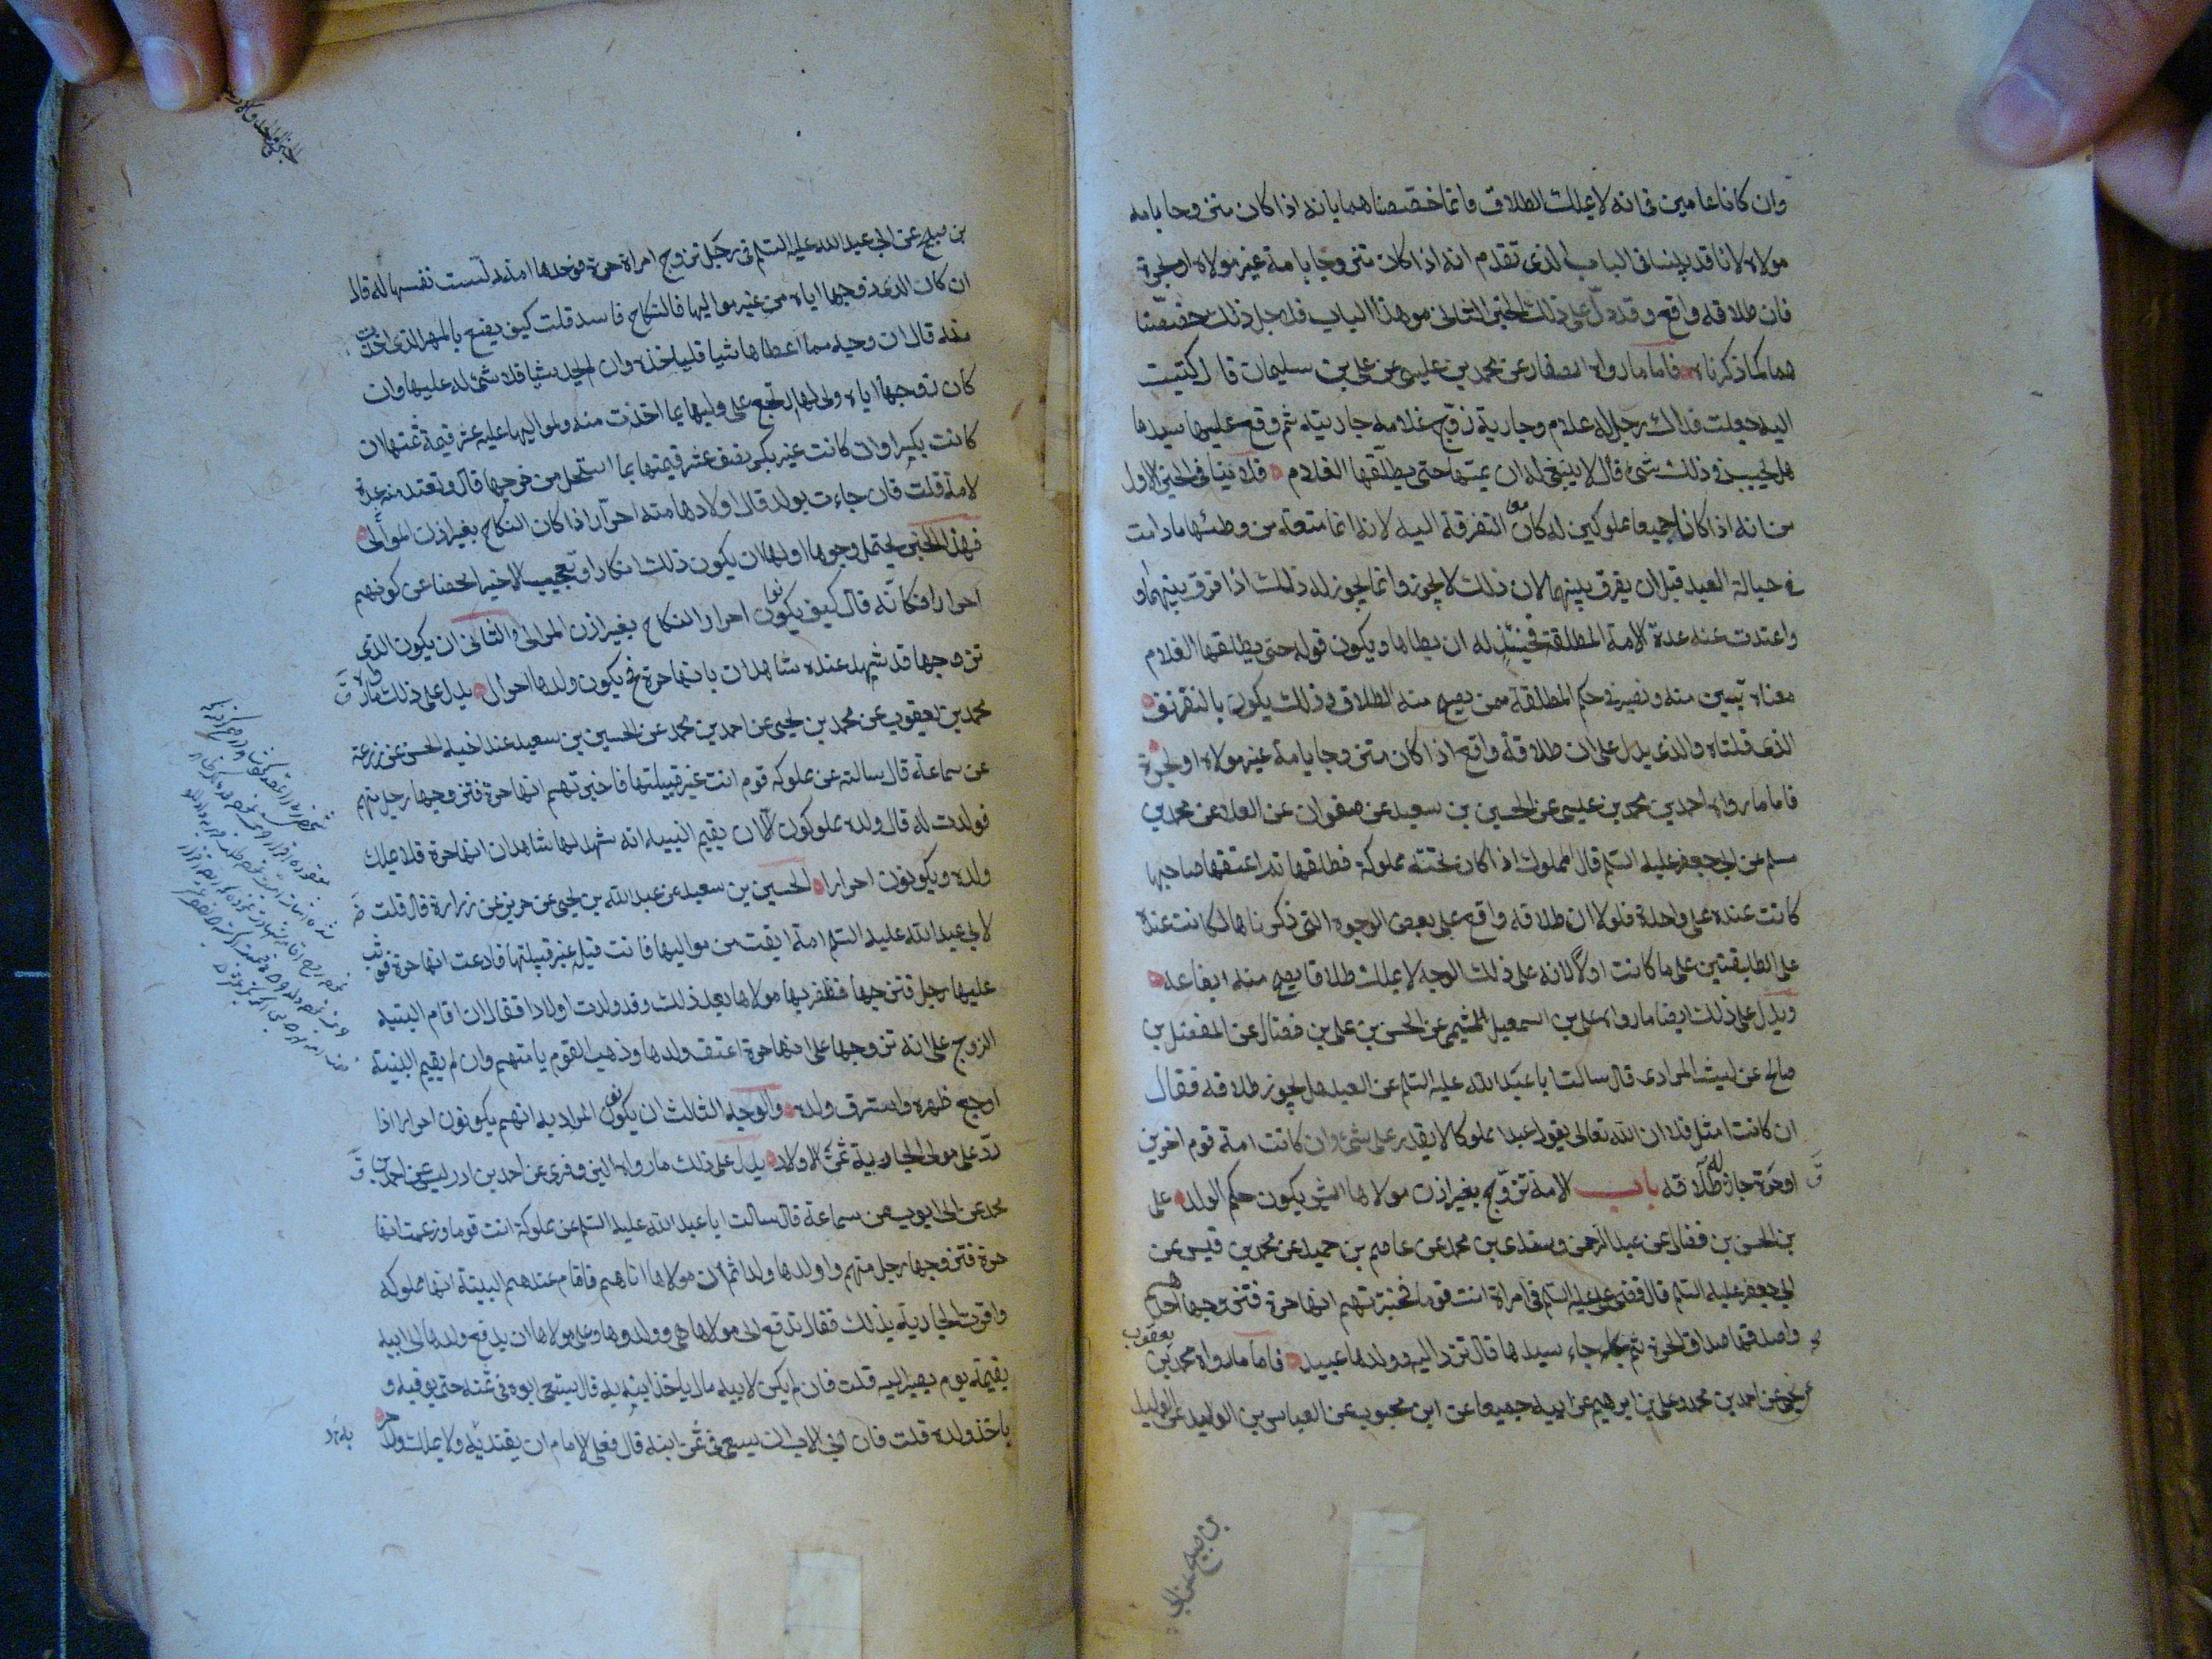 وان كانا عامين فى انه لا يملك الطلاق فانما خصصناهما بانه اذا كان متزوجا بامه
مولاه لانا قد بينا فى الباب الذى تقدم انه اذا كان متزوجا بامة غير مولاه او بحرة
فان طلاقه واقع وقد دل على ذلك الخبر الثانى من هذا الباب فلاجل ذلك خصصنا
هما كما ذكرناه فاما ما رواه الصفار عن محمد بن عليسى عن على بن سليمان قال كتبت
اليه جعلت فداك رجل له غلام وجارية زوج غلامه جاريته ثم وقع عليها سيدها
هل يجب فى ذلك شئ قال لا ينبغى له ان يمسها حتى يطلقها الغلام فلا ينافى الخبر الاول
من انه اذا كانا جميعا مملوكين له كان التفرقة اليه لانه انما منعه من وطئها ما دامت
فى حبالة العبد قبل ان يفرق بينهما لان ذلك لا يجوز وانما يجوز له ذلك اذا فرق بينهما و
واعتدت عنه عدة الامة المطلقة فحينئذ له ان يطاها ويكون قوله حتى يطلقها الغلام
معناه تبين منه وتصير فى حكم المطلقة ممن يصح منه الطلاق وذلك يكون بالتفريق
الذى قلناه والذى يدل على ان طلاقه واقع اذا كان متزوجا بامة غير مولاه او بحرة
فاما ما رواه احمد بن محمد بن عليسى عن الحسين بن سعيد عن صفوان عن العلا عن محمد بن
مسلم عن ابى جعفر عليه السلم قال المملوك اذا كان تحته مملوكة فطلقها ثم اعتقها صاحبها
كانت عنده على واحدة فلولا ان طلاقه واقع على بعض الوجوه التى ذكرناها لما كانت عنده
على تطليقتين على ما كانت اولا لانه على ذلك الوجه لا يملك طلاقا يصح منه ايقاعه
ويدل على ذلك ايضا ما رواه على بن اسمعيل الميثمى عن الحسن بن على بن فضال عن المفضل بن
صالح عن ليث المرادى قال سالت ابا عبد الله عليه السلم عن العبد هل يجوز طلاقه فقال
ان كانت امتك فلا ان الله تعالى يقول عبدا مملوكا لا يقدر على شئ وان كانت امة قوم اخرين
او حرة جاز طلاقه باب الامة تزوج بغير اذن مولاها اى شئ يكون حكم الولد على
بن الحسن بن فضال عن عبد الرحمن وسندى بن محمد عن عاصم بن حميد عن محمد بن قيس عن
ابى جعفر عليه السلم قال قضى على عليه السلم فى امراة اتت قوما فخبرتهم انها حرة فتزوجها احدهم
واصدقها صداق الحرة ثم جاء سيدها قال ترد اليه وولدها عبيد فاما ما رواه محمد بن يعقوب
عن احمد بن محمد وعلى بن ابرهيم عن ابيه جميعا عن ابن محبوب عن العباس بن الوليد عن الوليد
بن صبيح عن ابى
بن صبيح عن ابى عبد الله عليه السلم فى رجل تزوج امراة حرة فوجدها امة دلست نفسها له قال
ان كان الذى زوجها اياه من غير مواليها فالنكاح فاسد قلت كيف يصنع بالمهر الذى اخذت
منه قال ان وجد مما اعطاها شيا فلياخذه وان لم يجد شيا فلا شئ له عليها وان
كان زوجها اياه ولى لها رجع على وليها بما اخذت منه ولمواليها عليه عشر قيمة ثمنها ان
كانت بكرا وان كانت غير بكر نصف عشر قيمتها بما استحل من فرجها قال وتعتد منه عدة
الامة قلت فان جاءت بولد قال اولادها منه احرار اذا كان النكاح بغير اذن الموالى
فهذا الخبر يحتمل وجوها اولها ان يكون ذلك انكارا وتعجب لا خبرا محضا عن كونهم
احرارا فكانه قال كيف يكونوا احرارا والنكاح بغير اذن الموالى والثانى ان يكون الذى
تزوجها قد شهد عنده شاهدان بانها حرة فح يكون ولدها احرار يدل على ذلك ما رواه
محمد بن يعقوب عن محمد بن يحيى عن احمد بن محمد عن الحسين بن سعيد عن اخيه الحسن عن زرعة
عن سماعة قال سالته عن مملوكة قوم اتت غير قبيلتها فاخبرتهم انها حرة فتزوجها رجل منهم
فولدت له قال ولده مملوكون الا ان يقيم البينة انه شهد لها شاهدان انها حرة فلا يملك
ولده ويكونون احرارا الحسين بن سعيد عن عبد الله بن يحيى عن حريز عن زرارة قال قلت
لابى عبد الله عليه السلم امة ابقت من مواليها فاتت قبيلة غير قبيلتها فادعت انها حرة فوثب
عليها رجل فتزوجها فظفر بها مولاها بعد ذلك وقد ولدت اولادا فقال ان اقام البينة
الزوج على انه تزوجها على انها حرة اعتق ولدها وذهب القوم بامتهم وان لم يقيم البينة
اوجع ظهره واسترق ولده والوجه الثالث ان يكون المراد به انهم يكونون احرارا اذا
رد على مولى الجارية ثمن الاولاد يدل على ذلك ما رواه البزوفرى عن احمد بن ادريس عن احمد بن
محمد عن ابى ايوب عن سماعة قال سالت ابا عبد الله عليه السلم عن مملوكة اتت قوما وزعمت انها
حرة فتزوجها رجل منهم واولدها ولدا ثم ان مولاها اتاهم فاقام عندهم البينة انها مملوكه
واقرت الجارية بذلك فقال تدفع الى مولاها هى وولدها وعلى مولاها ان يدفع ولدها الى ابيه
بقيمته يوم يصير اليه قلت فان لم يكن لابيه ما ياخذ ابنه به قال يستعى ابوه فى ثمنه حتى يوفيه و
ياخذ ولده قلت فان ابى الاب ان يسعى فى ثمن ابنه قال فعلى الامام ان يفتديه ولا يملك ولد حر